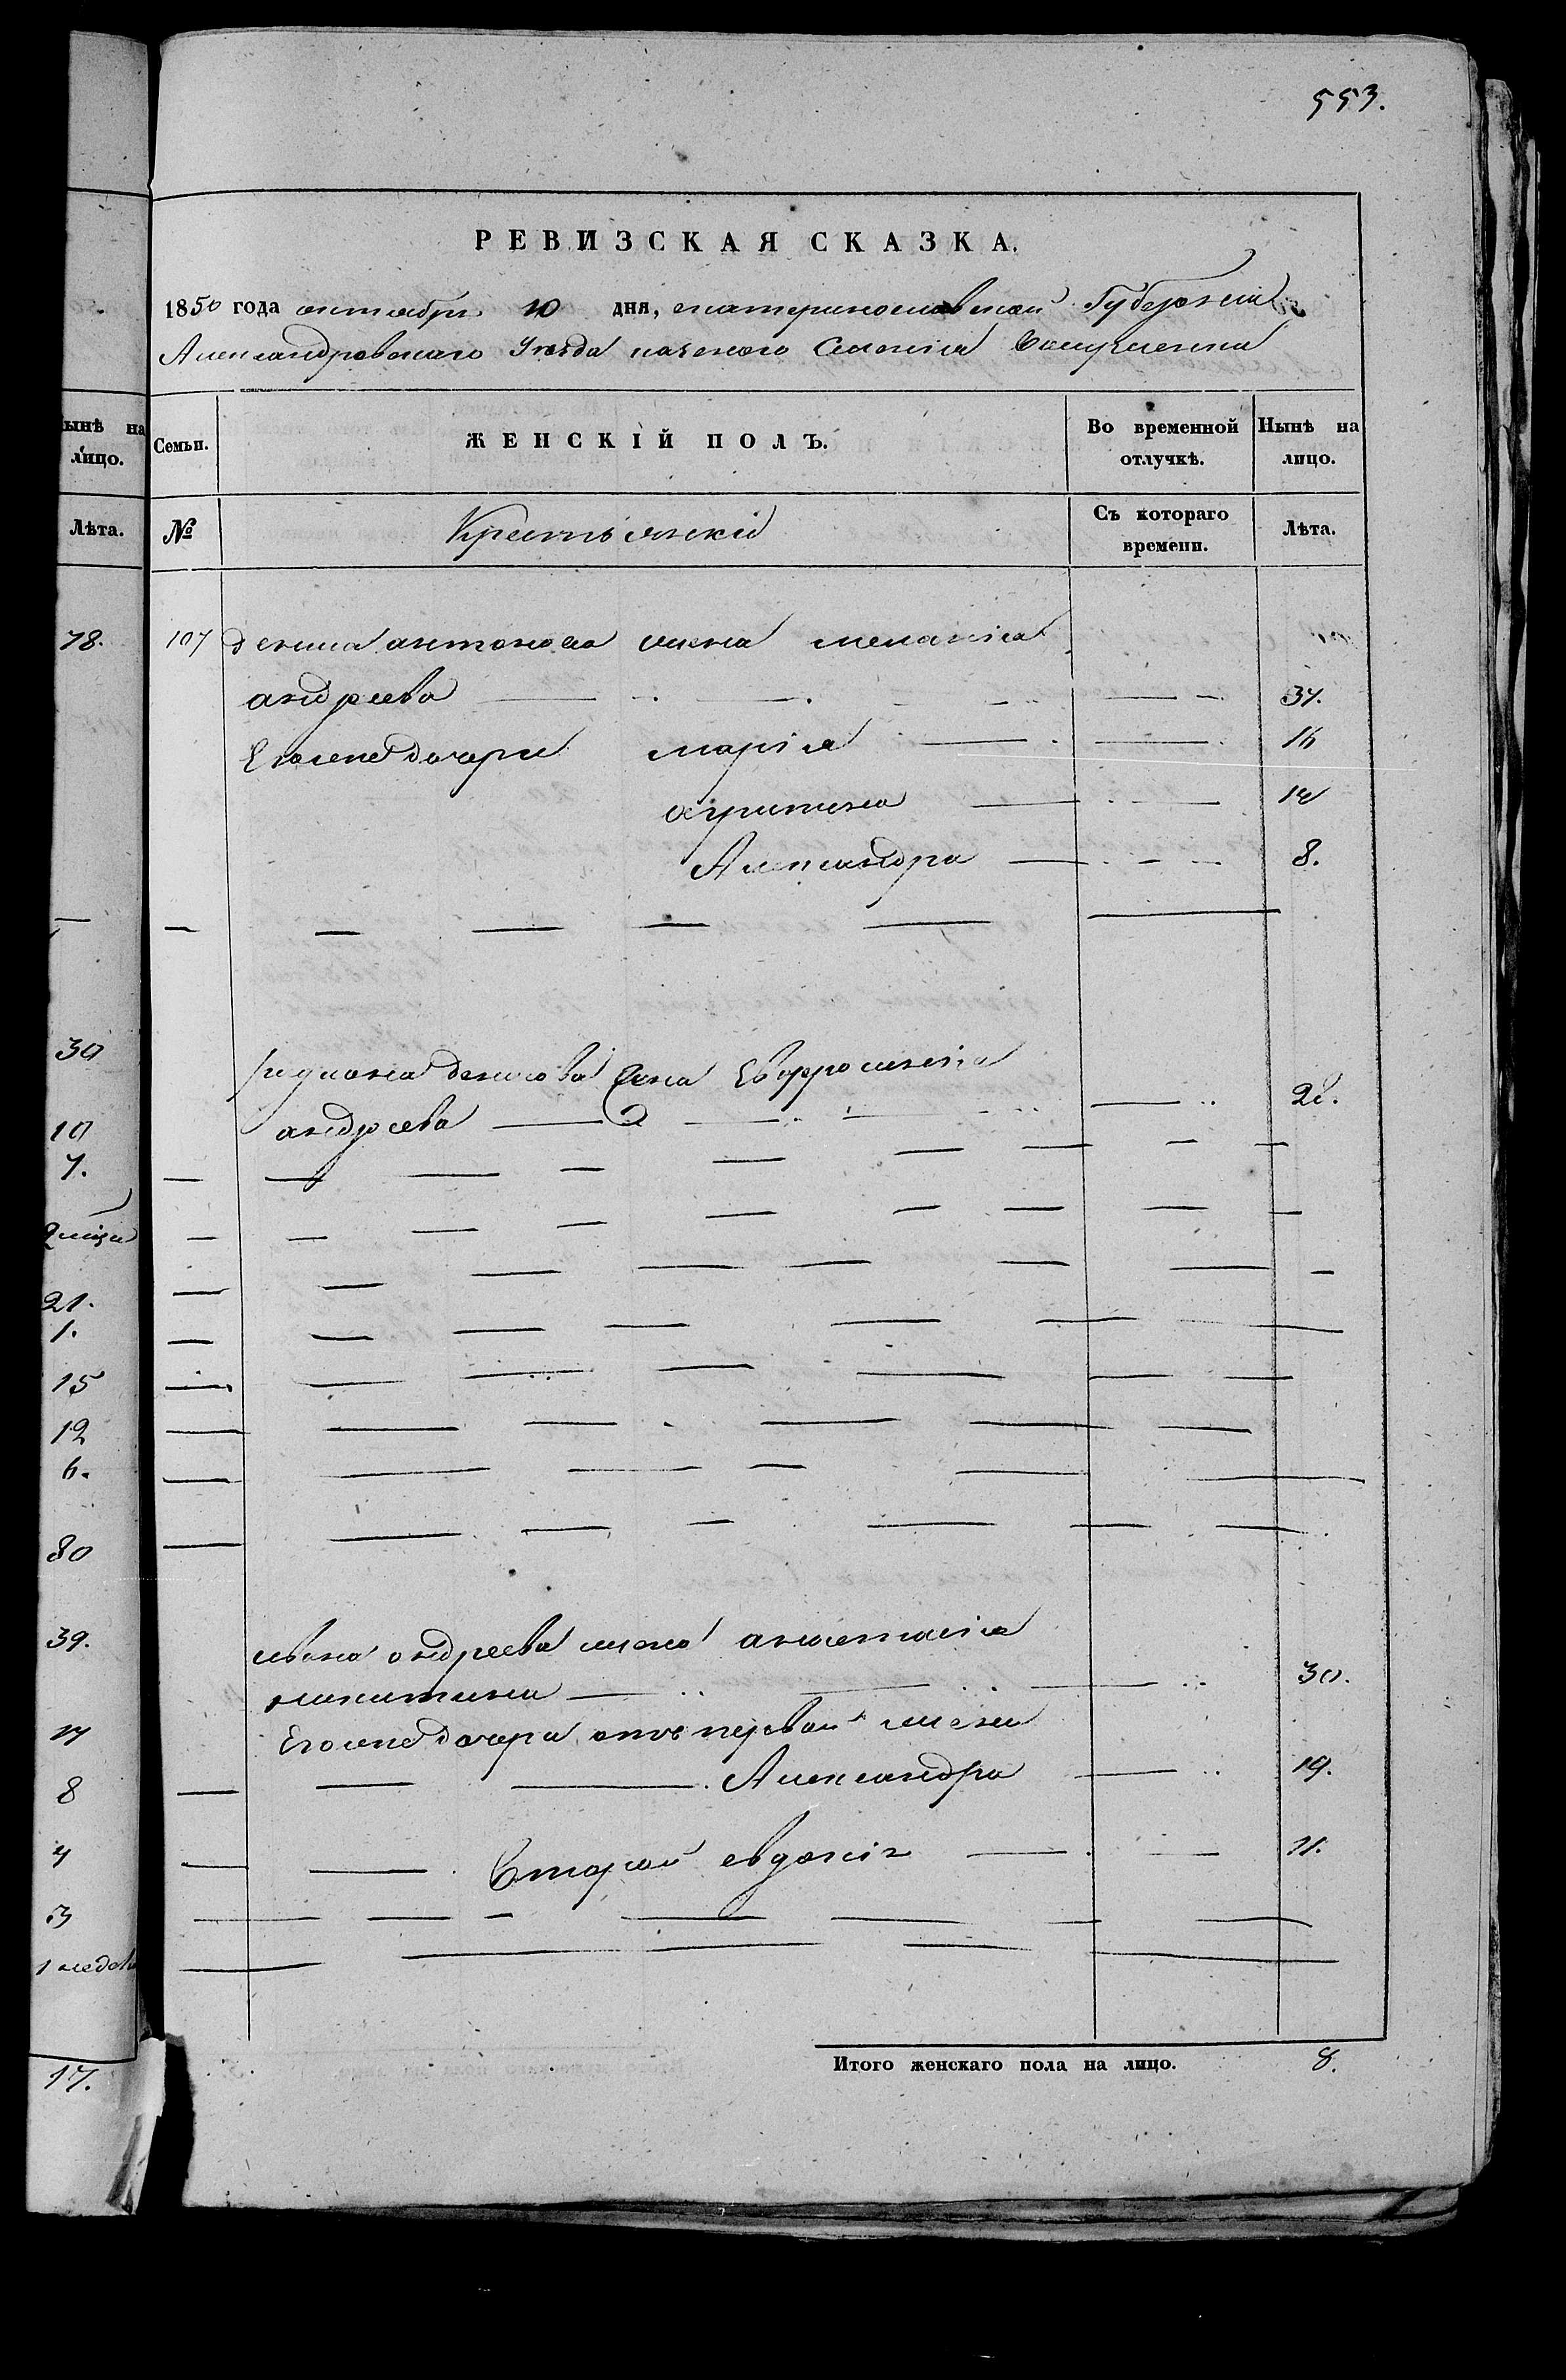 553.
РЕВИЗСКАЯ СКАЗКА.
1850 года октября 10 дня, екатеринославской Губернии
Александровскаго Уезда
ынѣ на лицо.
Семьи.
ЖЕНСКІЙ ПОЛЪ.
Во временной отлучкѣ.
Нынѣ на лицо.
Лѣта.
№
Съ котораго времени.
Лѣта.
78.
107 дениса антонова жена меланія
андреева 37.
Егожене дочери марія 16
агрипина 14
Александра 8.
30
родиона денисова жена Евфросинія
андреева 28.
10
7.
21.
1.
15
12
6.
80
39.
ивана андреева жена анастасія
никитина 30.
Егожене дочери отъ первой жены
17
Александра 19.
8
4
Второй евдокія 11.
3
1 недел
Итого женскаго пола на лицо. 8.
17.